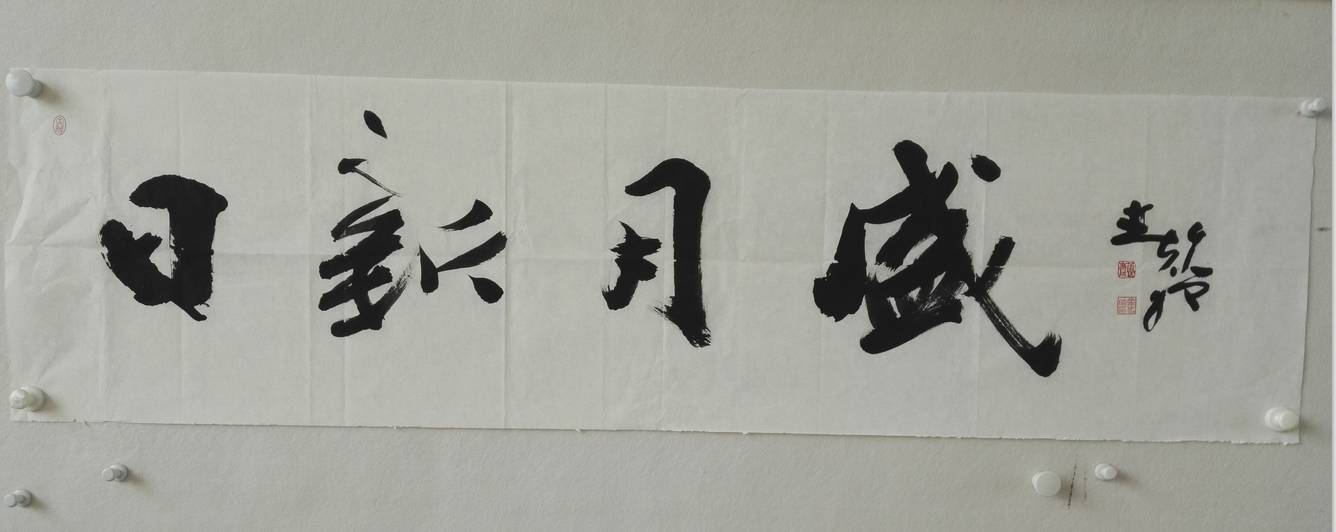 日新月盛